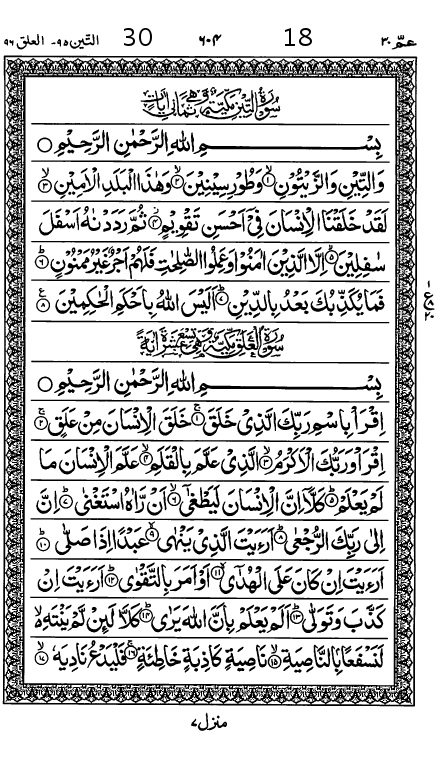 عمّ ۳۰ 18 ۶۰۴ 30 التّين ۹۵- العلق ۹۶
سُوْرَةُ التِّيْنِ مَكِّيَّةٌ وَّهِيَ ثَمَانِيْ اٰيَاتٍ
بِسْمِ اللّٰهِ الرَّحْمٰنِ الرَّحِيْمِ ۝
وَالتِّيْنِ وَالزَّيْتُوْنِ ۝۱ وَطُوْرِ سِيْنِيْنَ ۝۲ وَهٰذَا الْبَلَدِ الْاَمِيْنِ ۝۳
لَقَدْ خَلَقْنَا الْاِنْسَانَ فِيْٓ اَحْسَنِ تَقْوِيْمٍ ۝۴ ثُمَّ رَدَدْنٰهُ اَسْفَلَ
سٰفِلِيْنَ ۝۵ اِلَّا الَّذِيْنَ اٰمَنُوْا وَعَمِلُوا الصّٰلِحٰتِ فَلَهُمْ اَجْرٌ غَيْرُ مَمْنُوْنٍ ۝۶
فَمَا يُكَذِّبُكَ بَعْدُ بِالدِّيْنِ ۝۷ اَلَيْسَ اللّٰهُ بِاَحْكَمِ الْحٰكِمِيْنَ ۝۸
سُوْرَةُ الْعَلَقِ مَكِّيَّةٌ وَّهِيَ تِسْعَ عَشْرَةَ اٰيَةً
بِسْمِ اللّٰهِ الرَّحْمٰنِ الرَّحِيْمِ ۝
اِقْرَاْ بِاسْمِ رَبِّكَ الَّذِيْ خَلَقَ ۝۱ خَلَقَ الْاِنْسَانَ مِنْ عَلَقٍ ۝۲
اِقْرَاْ وَرَبُّكَ الْاَكْرَمُ ۝۳ الَّذِيْ عَلَّمَ بِالْقَلَمِ ۝۴ عَلَّمَ الْاِنْسَانَ مَا
لَمْ يَعْلَمْ ۝۵ كَلَّآ اِنَّ الْاِنْسَانَ لَيَطْغٰٓى ۝۶ اَنْ رَّاٰهُ اسْتَغْنٰى ۝۷ اِنَّ
اِلٰى رَبِّكَ الرُّجْعٰى ۝۸ اَرَءَيْتَ الَّذِيْ يَنْهٰى ۝۹ عَبْدًا اِذَا صَلّٰى ۝۱۰
اَرَءَيْتَ اِنْ كَانَ عَلَى الْهُدٰٓى ۝۱۱ اَوْ اَمَرَ بِالتَّقْوٰى ۝۱۲ اَرَءَيْتَ اِنْ
كَذَّبَ وَتَوَلّٰى ۝۱۳ اَلَمْ يَعْلَمْ بِاَنَّ اللّٰهَ يَرٰى ۝۱۴ كَلَّا لَئِنْ لَّمْ يَنْتَهِ
لَنَسْفَعًۢا بِالنَّاصِيَةِ ۝۱۵ نَاصِيَةٍ كَاذِبَةٍ خَاطِئَةٍ ۝۱۶ فَلْيَدْعُ نَادِيَهٗ ۝۱۷
منزل۷